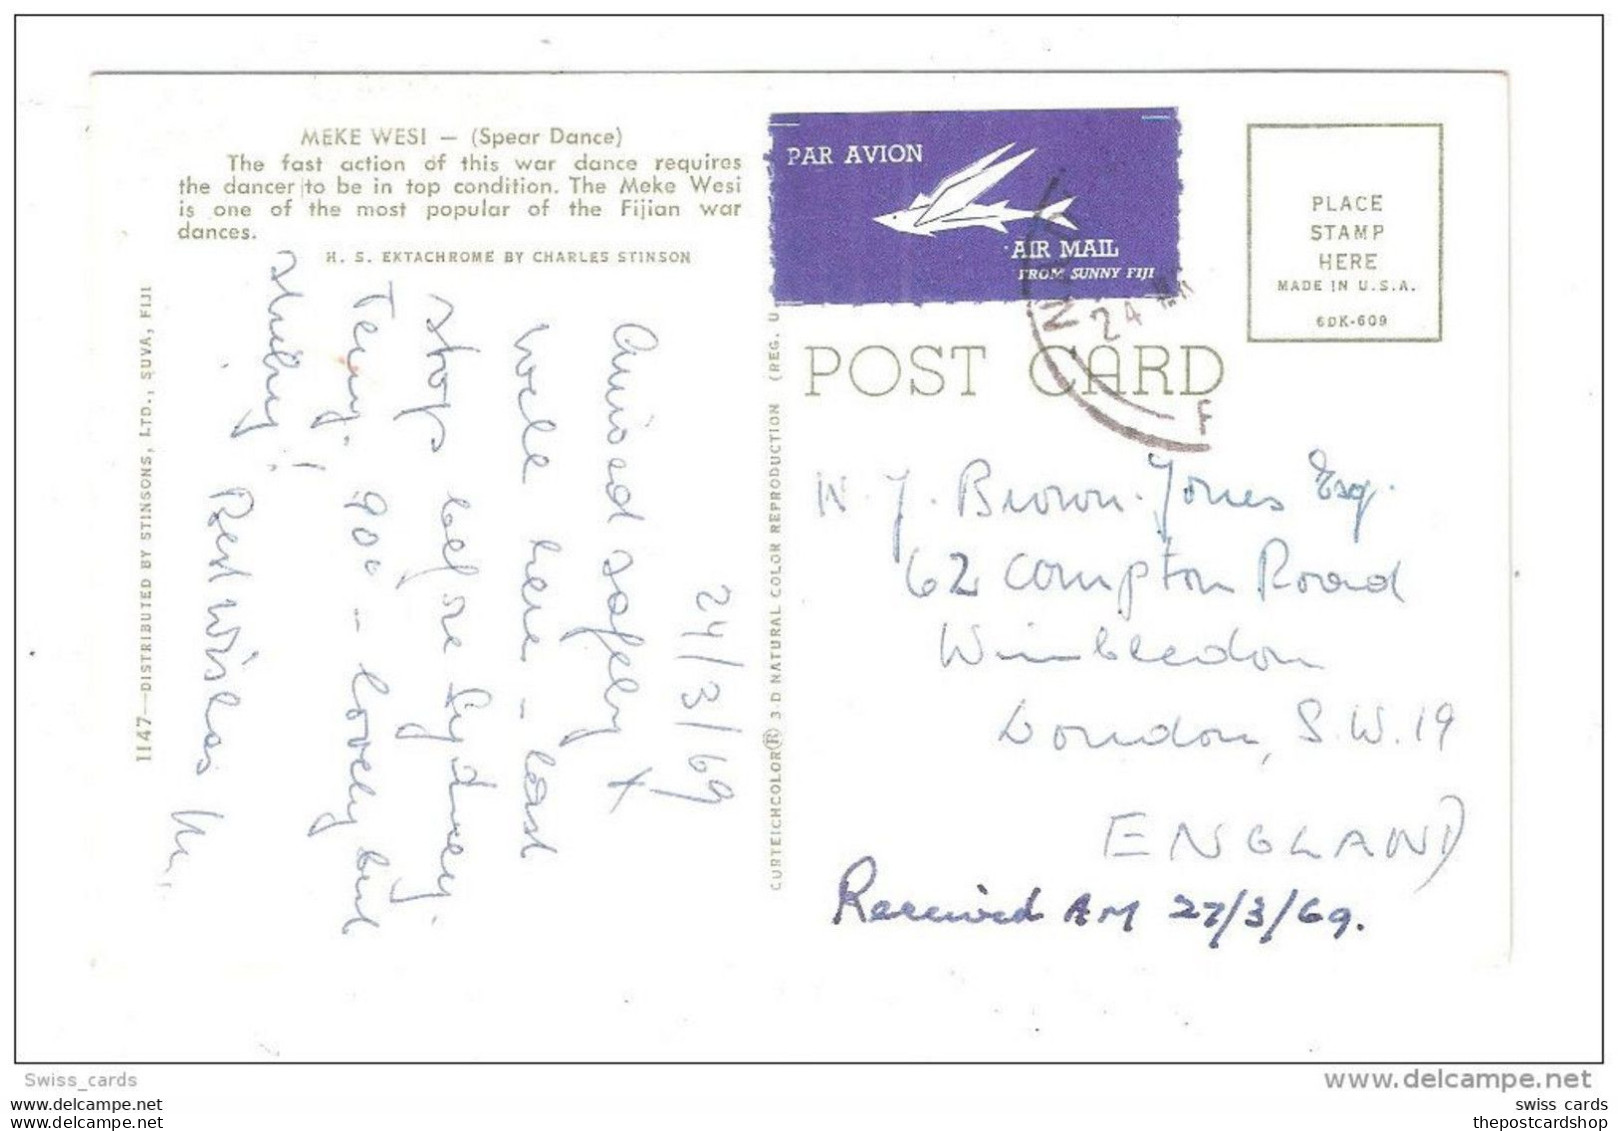 MEKE WESI — (Spear Dance)
The fast action of this war dance requires
the dancer to be in top condition. The Meke Wesi
is one of the most popular of the Fijian war
dances.
H. S. EKTACHROME BY CHARLES STINSON
1147—DISTRIBUTED BY STINSONS, LTD., SUVA, FIJI
24/3/69
Arrived safely &
well here - last
stop before Sydney.
Temp. 90° - lovely but
sticky!
Best Wishes
CURTEICHCOLOR® 3-D NATURAL COLOR REPRODUCTION (REG. U
PAR AVION
AIR MAIL
FROM SUNNY FIJI
24
PLACE
STAMP
HERE
MADE IN U.S.A.
6DK-609
POST CARD
N. J. Brown-Jones Esq.
62 Compton Road
Wimbledon
London, S.W.19
ENGLAND
Received AM 27/3/69.
Swiss_cards
www.delcampe.net
swiss cards
swiss cards
thepostcardshop
thepostcardshop